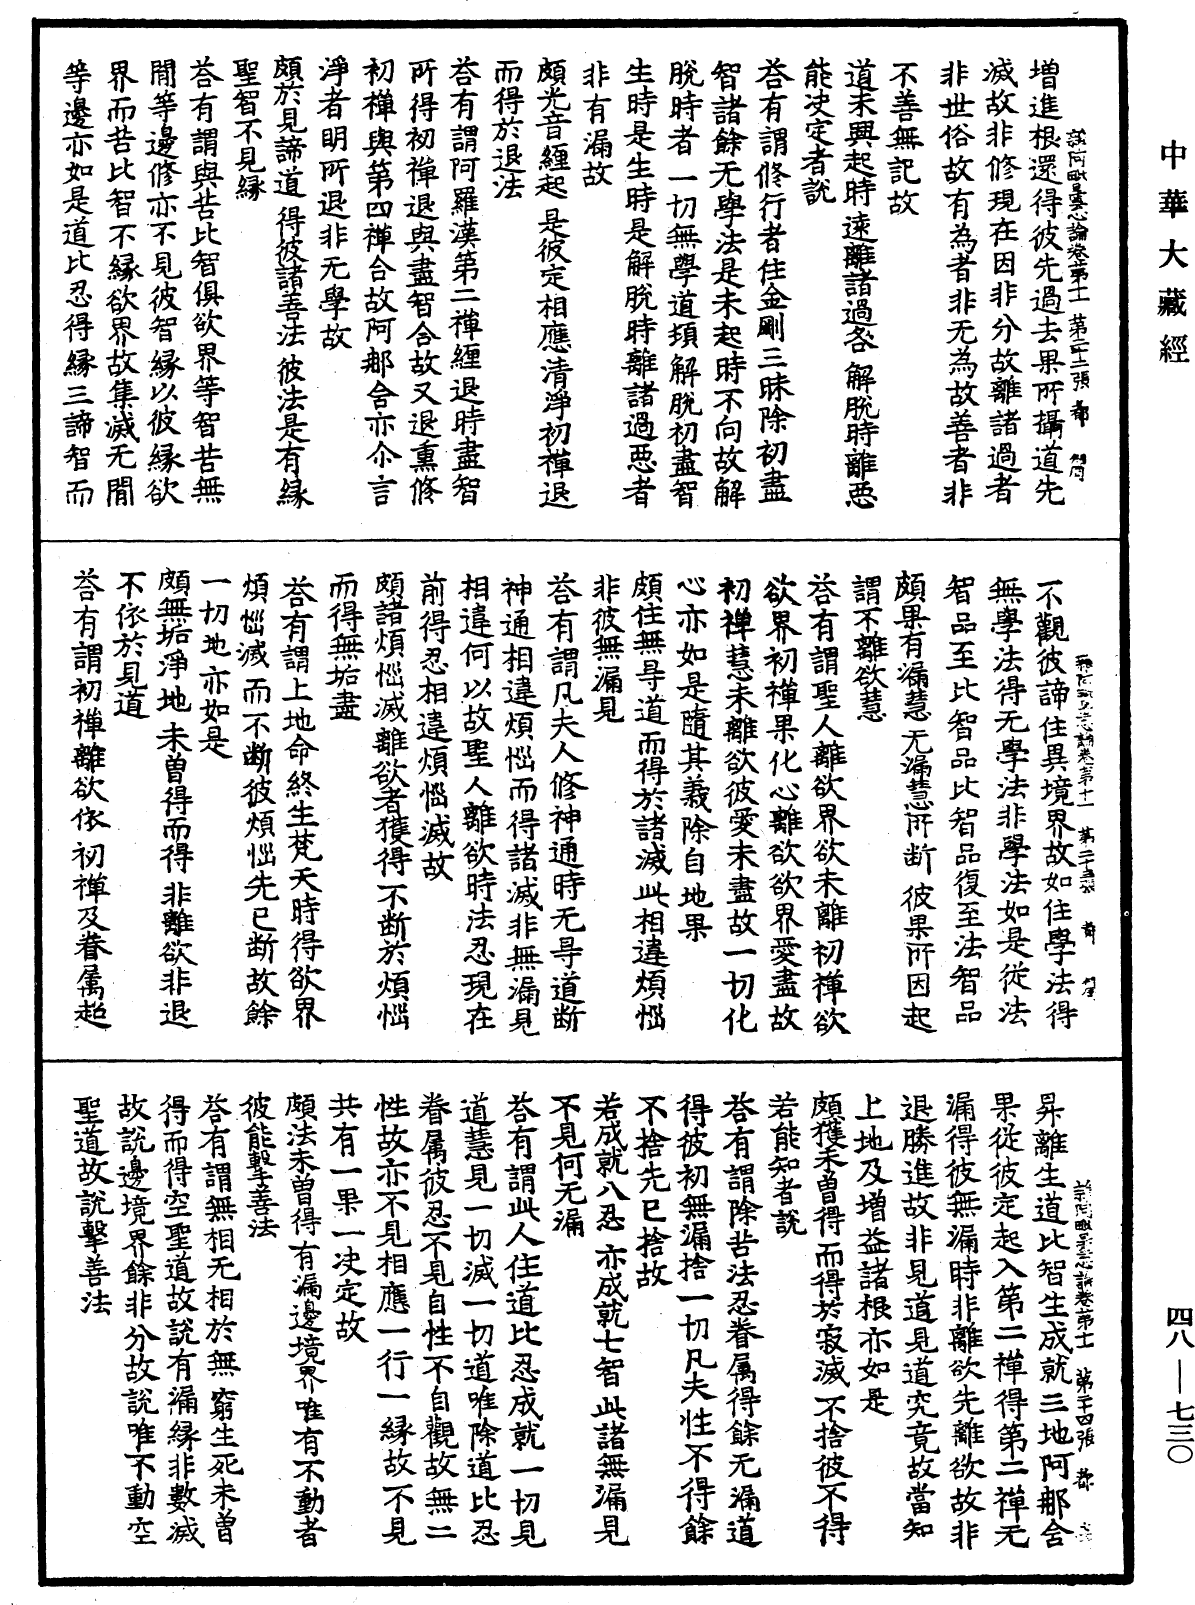 中華大藏經
增進根還得彼先過去果所攝道先
滅故非修現在因非分故離諸過者
非世俗故有為者非无為故善者非
不善無記故
道未興起時遠離諸過咎 解脫時離惡
能決定者說
荅有謂修行者住金剛三昧除初盡
智諸餘无學法是未起時不向故解
脫時者一切無學道頂解脫初盡智
生時是生時是解脫時離諸過惡者
非有漏故
頗光音纏起 是彼定相應清淨初禪退
而得於退法
荅有謂阿羅漢第二禪纏退時盡智
所得初禪退與盡智合故又退熏修
初禪與第四禪合故阿那含亦尒言
淨者明所退非无學故
頗於見諦道 得彼諸善法 彼法是有緣
聖智不見緣
荅有謂與苦比智俱欲界等智苦無
閒等邊修亦不見彼智緣以彼緣欲
界而苦比智不緣欲界故集滅无閒
等邊亦如是道比忍得緣三諦智而
不觀彼諦住異境界故如住學法得
無學法得无學法非學法如是從法
智品至比智品比智品復至法智品
頗果有漏慧 无漏慧所斷 彼果所因起
謂不離欲慧
荅有謂聖人離欲界欲未離初禪欲
欲界初禪果化心離欲欲界愛盡故
初禪慧未離欲彼愛未盡故一切化
心亦如是隨其義除自地果
頗住無㝵道 而得於諸滅 此相違煩惱
非彼無漏見
荅有謂凡夫人修神通時无㝵道斷
神通相違煩惱而得諸滅非無漏見
相違何以故聖人離欲時法忍現在
前得忍相違煩惱滅故
頗諸煩惱滅 離欲者獲得 不斷於煩惱
而得無垢盡
荅有謂上地命終生梵天時得欲界
煩惱滅而不斷彼煩惱先已斷故餘
一切地亦如是
頗無垢淨地 未曾得而得 非離欲非退
不依於見道
荅有謂初禪離欲依初禪及眷屬超
昇離生道比智生成就三地阿那含
果從彼定起入第二禪得第二禪无
漏得彼無漏時非離欲先離欲故非
退勝進故非見道見道究竟故當知
上地及增益諸根亦如是
頗獲未曾得 而得於寂滅 不捨彼不得
若能知者說
荅有謂除苦法忍眷屬得餘无漏道
得彼初無漏捨一切凡夫性不得餘
不捨先已捨故
若成就八忍 亦成就七智 此諸無漏見
不見何无漏
荅有謂此人住道比忍成就一切見
道慧見一切滅一切道唯除道比忍
眷屬彼忍不見自性不自觀故無二
性故亦不見相應一行一緣故不見
共有一果一決定故
頗法未曾得 有漏邊境界 唯有不動者
彼能擊善法
荅有謂無相无相於無窮生死未曾
得而得空聖道故說有漏緣非數滅
故說邊境界餘非分故說唯不動空
聖道故說擊善法
四八—七三〇